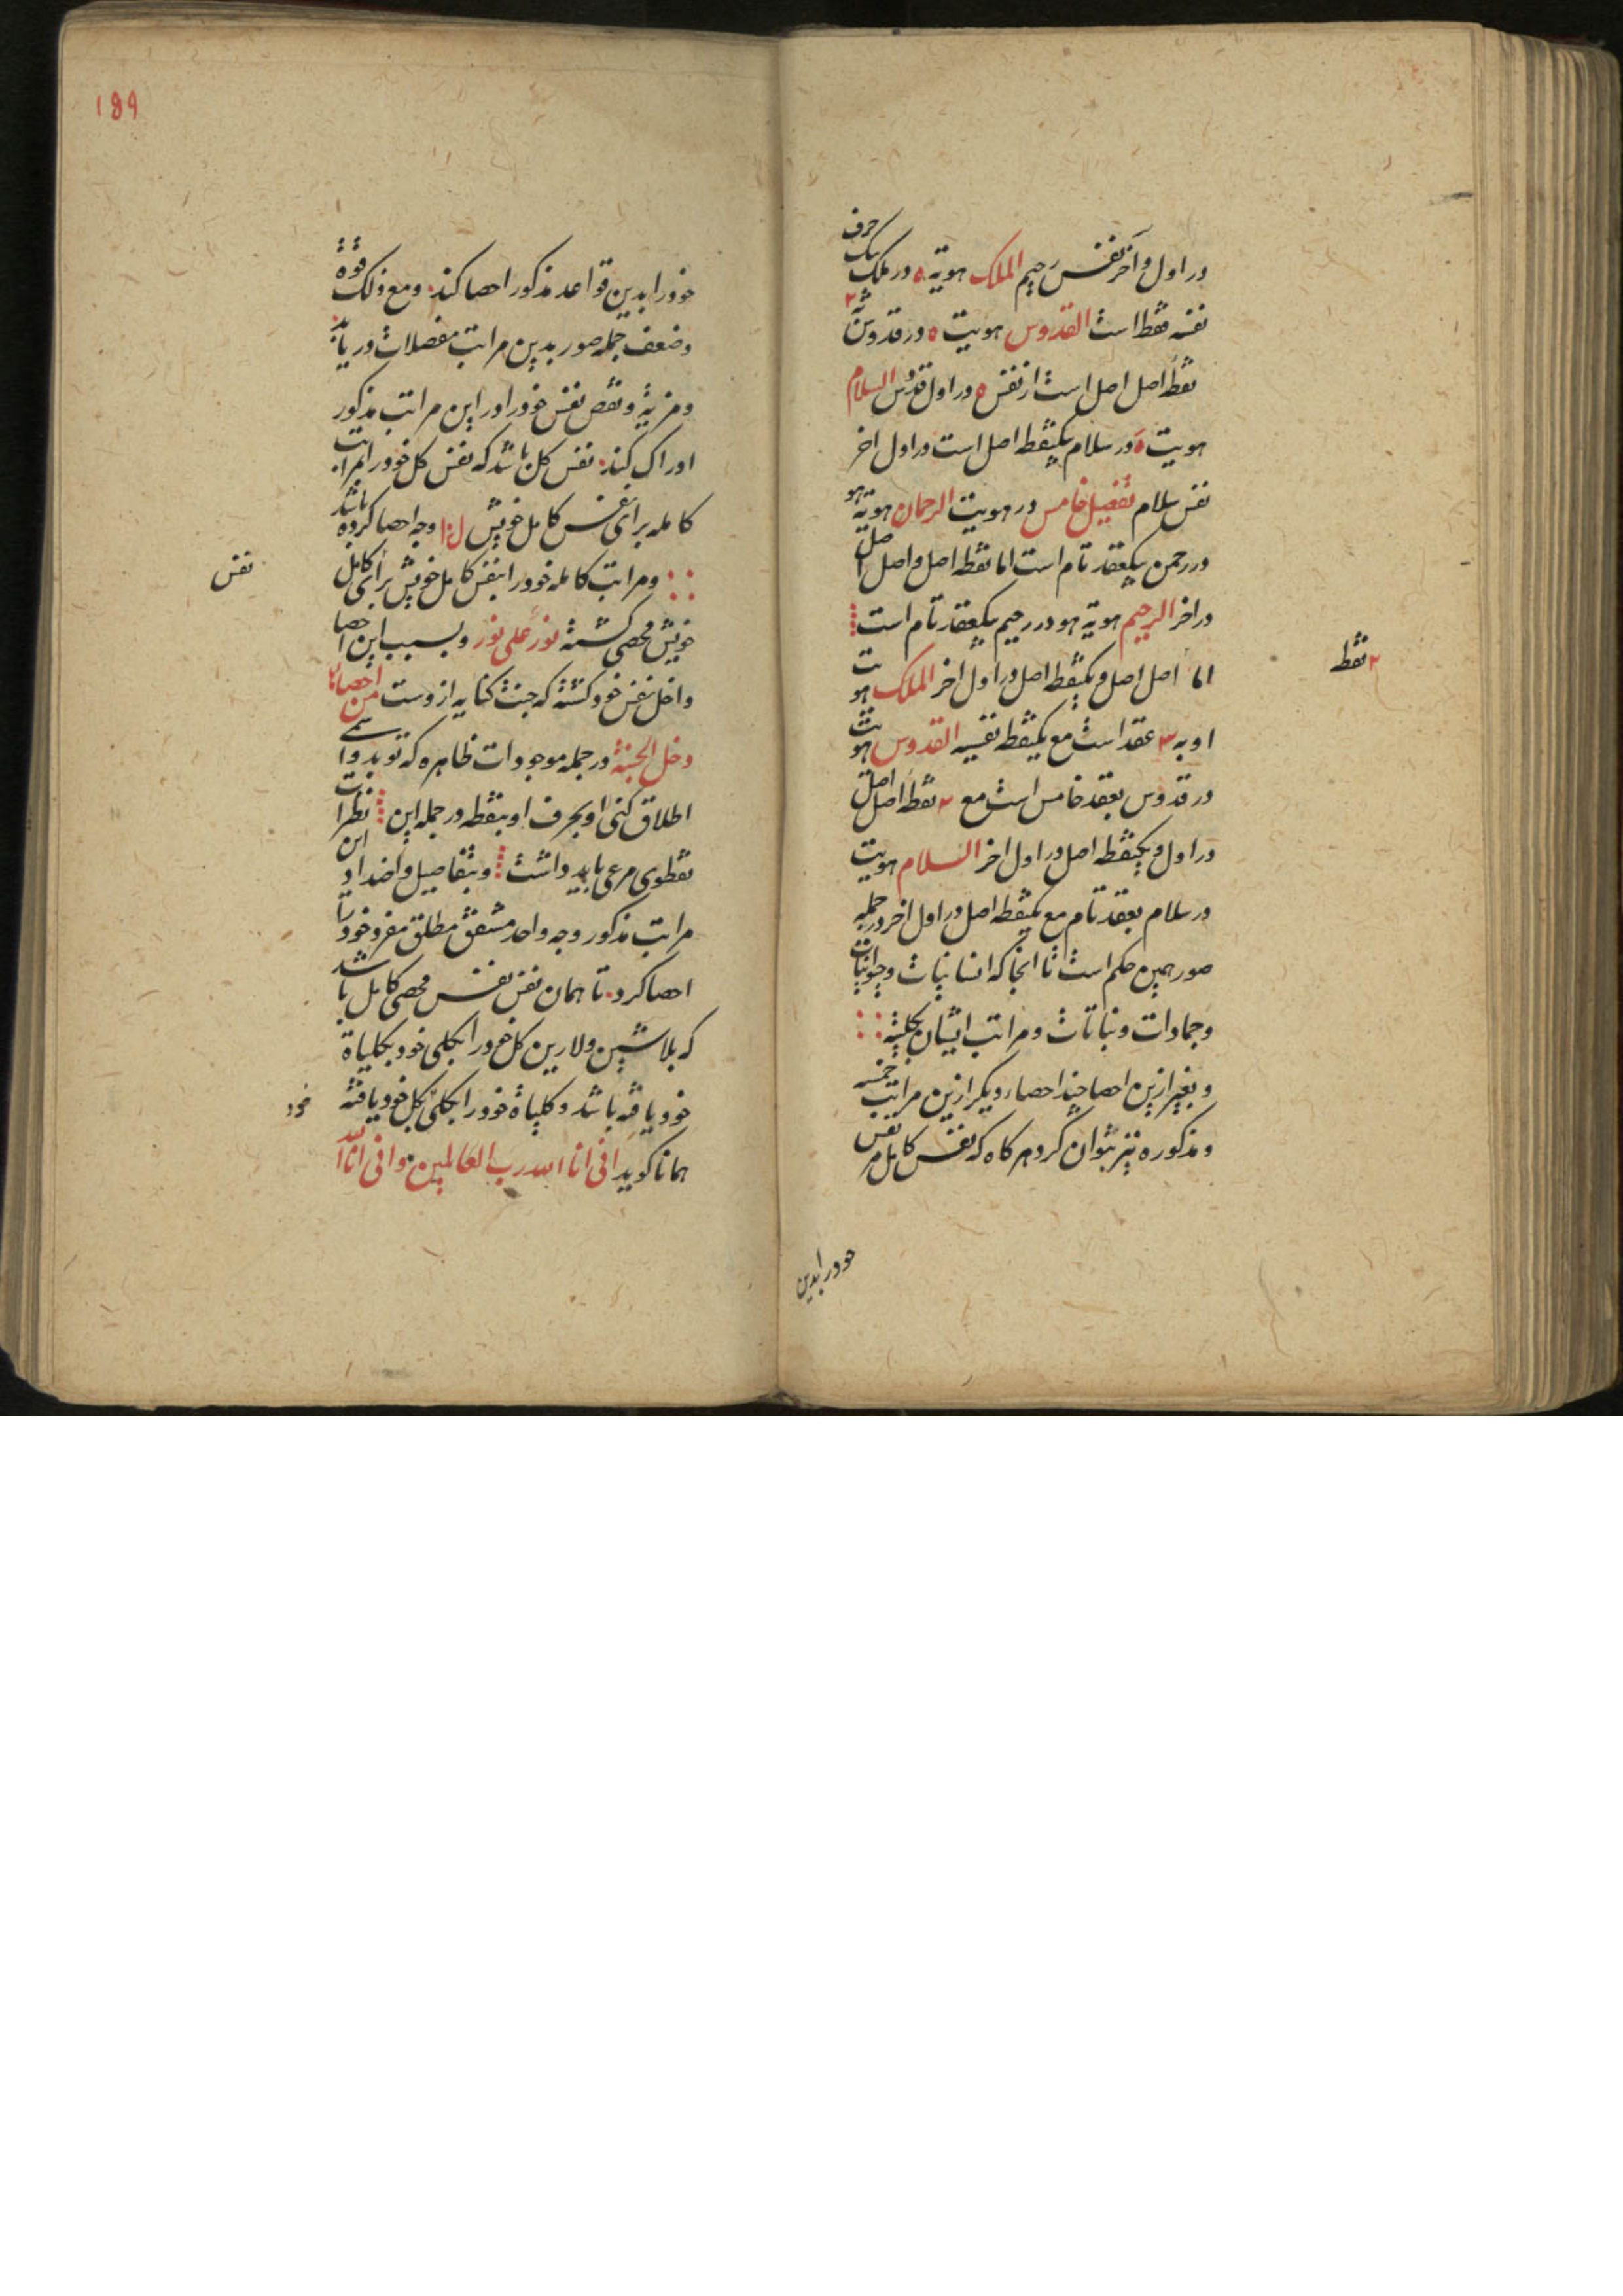 در اول و آخر نفس رحیم الملک هویة ۵ در ملک یک حرف
نفسه فقط است القدوس هویت ۵ در قدوس ۲
نقطه اصل اصل است از نفس ۵ در اول قدوس السلام
هویت ۵ در سلام یکنقطه اصل است در اول اخر
نفس سلام تفصیل خامس در هویت الرحمان هویة هو
در رحمن یکعقد تام است اما نقطه اصل و اصل اصل
در اخر الرحیم هویة هو در رحیم یکعقد تام است
اما اصل اصل و یکنقطه اصل در اول اخر الملک هویت
او به ۳ عقد است مع یکنقطه نفسیه القدوس هویت
در قدوس بعقد خامس است مع ۲ نقطه اصل اصل
در اول و یکنقطه اصل در اول اخر السلام هویت
در سلام بعقد تام مع یکنقطه اصل در اول اخر و در جمله
صور همین حکم است تا انجا که انسانیات و حیوانیات
و جمادات و نباتات و مراتب ایشان بکلیة
و بغیر ازین احصا چند احصاء دیکر ازین مراتب خمسه
و مذکوره نیز بتوان کرد هر کاه که نفس کامل مر نفس
خود را بدین
۲ نقط
۱۵۹
خود را بدین قواعد مذکور احصا کند و مع ذلک قوة
و ضعف جمله صور بدین مراتب مفصلات دریابد
و مزیة و نقص نفس خود را در این مراتب مذکور
ادراک کند نفس کل باشد که نفس کل خود را بمراتب
کامله برای نفس کامل خویش وجه احصا کرده باشد
و مراتب کامله خود را بنفس کامل خویش برای کامل
نفس
خویش محصی کشته نور علی نور و بسبب این احصا
داخل نفس خود کشته که جنت کنایه از وست من احصاها
دخل الجنة در جمله موجودات ظاهره که تو بدو اسمی
اطلاق کنی او بحرف او بنقطه در جمله این نظرات
نقطوی مرعی باید داشت و بتفاصیل و اضداد این
مراتب مذکور وجه واحد متفق مطلق مفرد خود را
احصا کرد تا همان نفس نفس محصی کامل باشد
که بلاشین و لارین کل خود را بکلی خود بکلیاة
خود یافته باشد و کلیاة خود را بکلی بکل خود یافته
خود
همانا کوید انی انا الله رب العالمین و انی انا الله